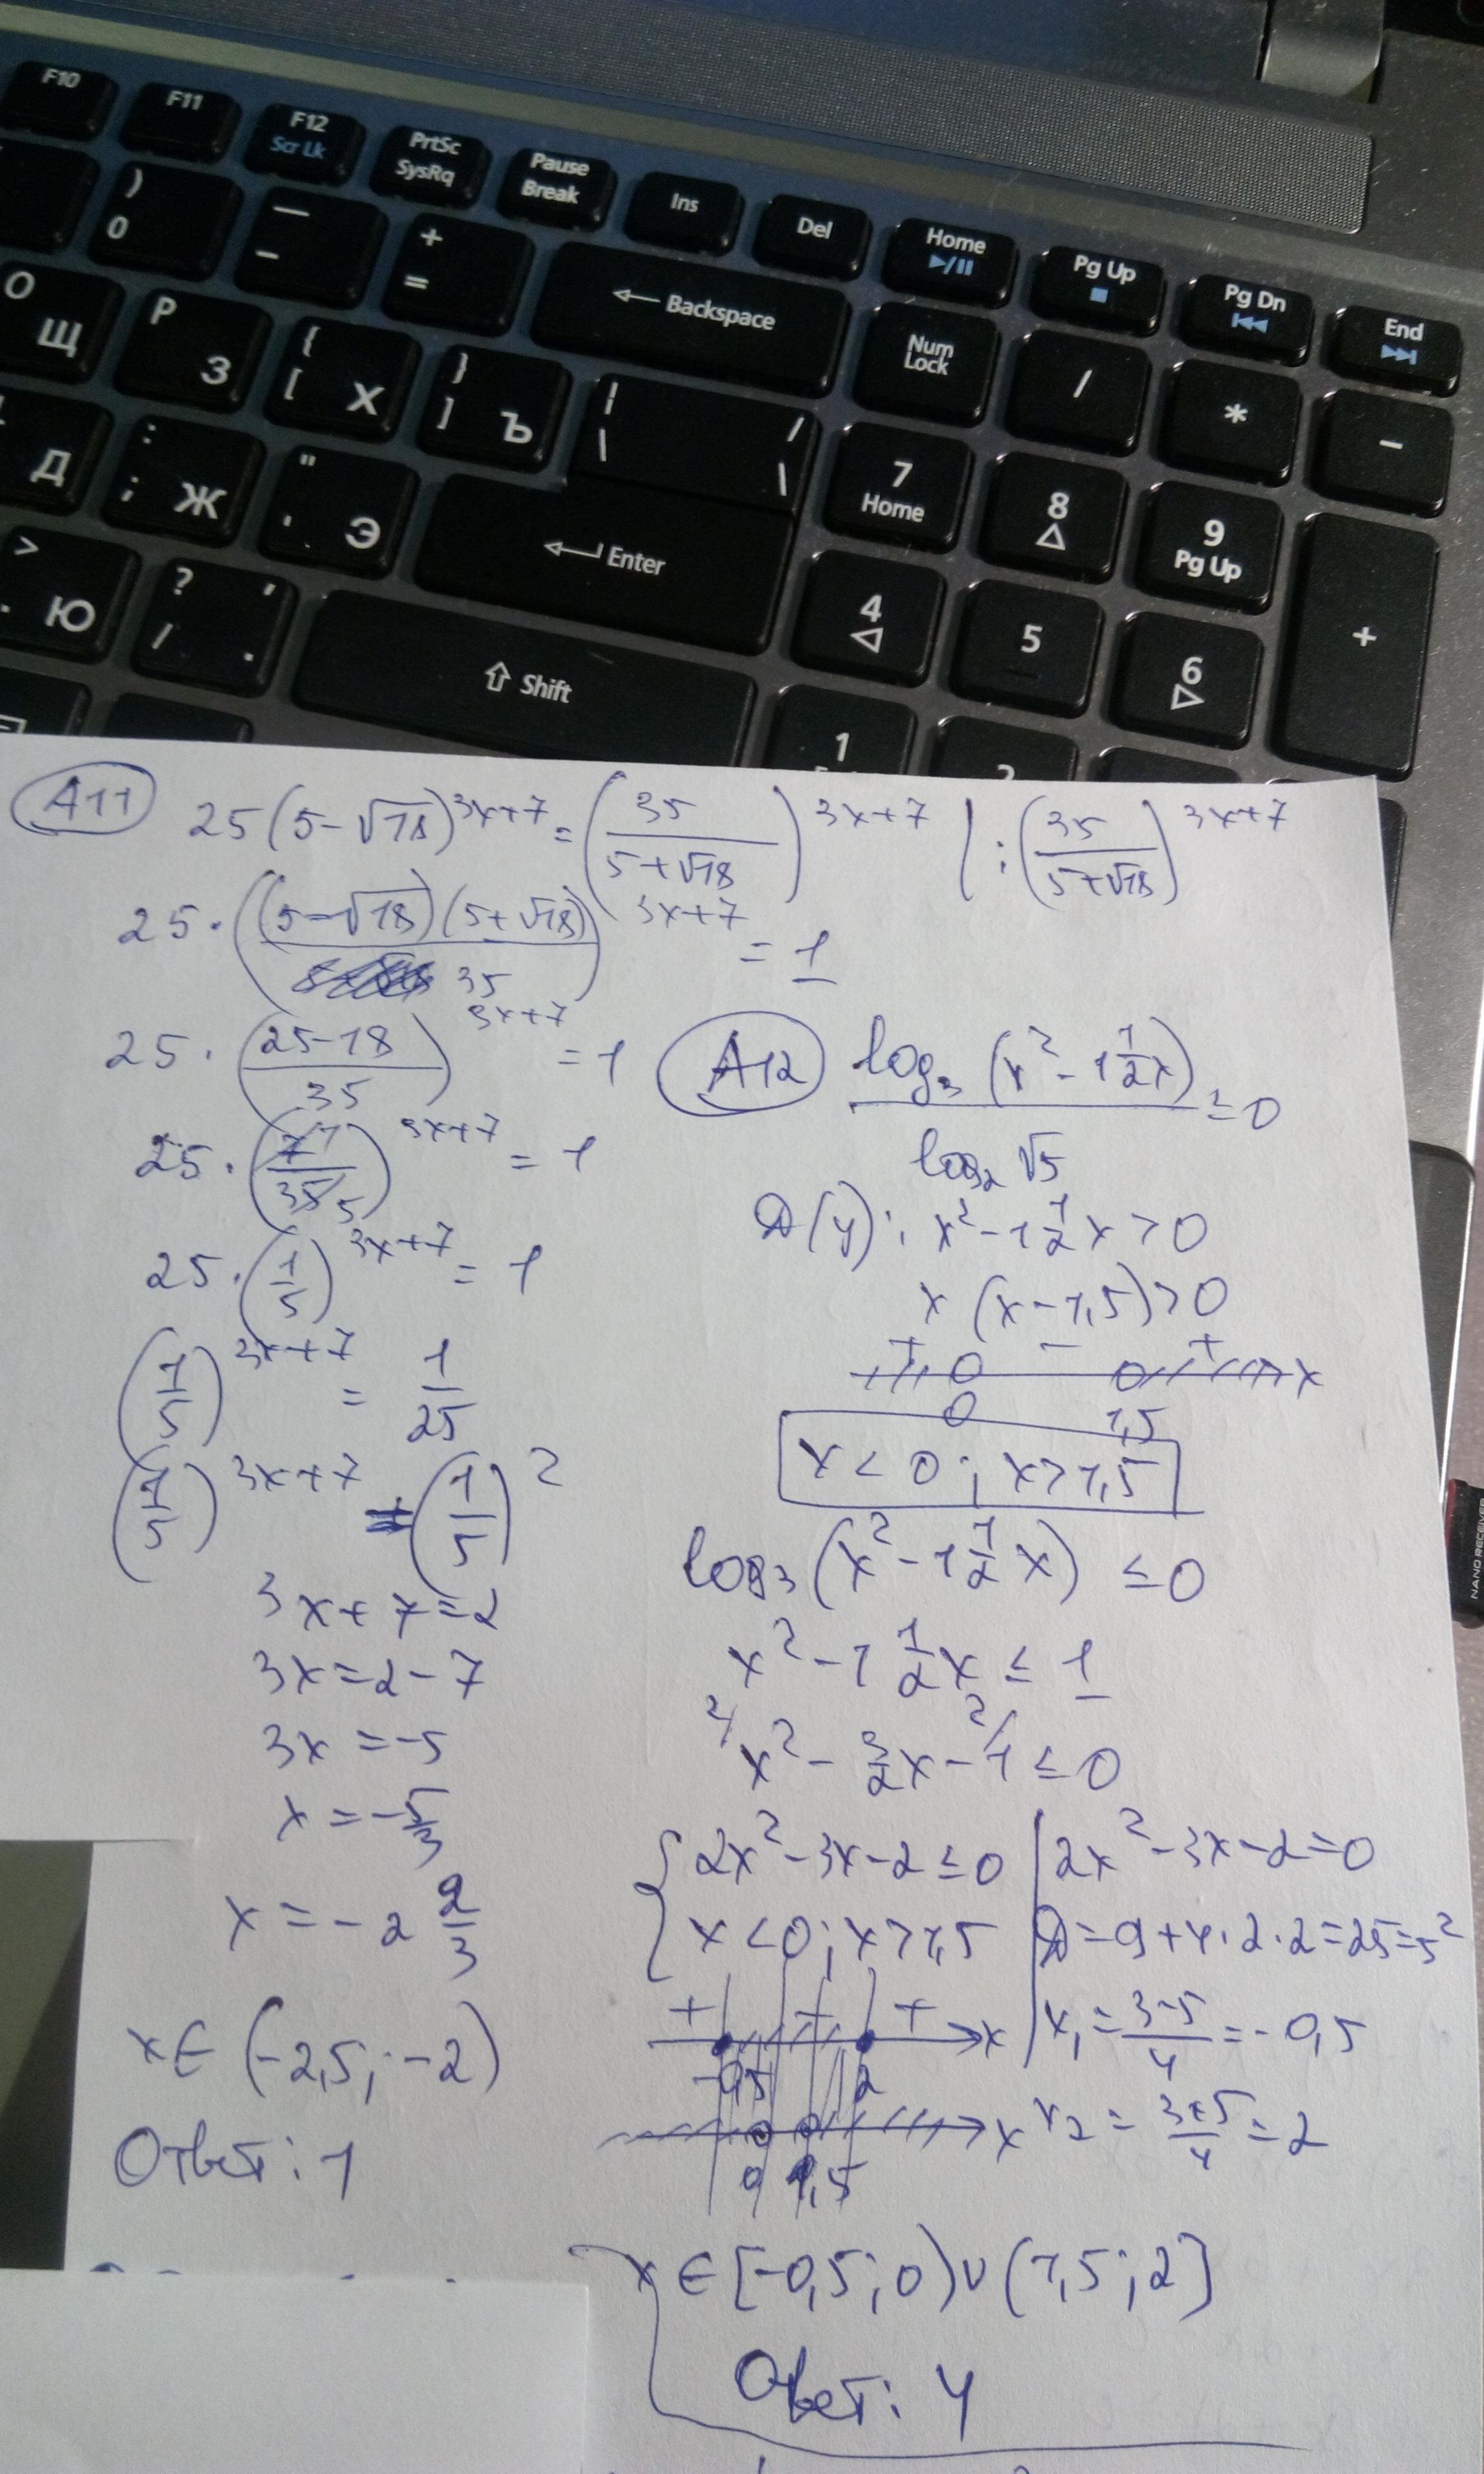 F10 F11 F12 PrtSc Pause Ins Del Home Pg Up Pg Dn End
Scr Lk SysRq Break
) 0 — - + = ← Backspace Num Lock / * -
O Щ P З { [ Х } ] Ъ | \ / \ 7 Home 8 9 Pg Up +
Д : ; Ж " ' Э ← Enter 4 5 6
> . Ю ? / , . ⇧ Shift 1 2
A11 25(5-√18)^{3x+7} = (35/(5+√18))^{3x+7} | : (35/(5+√18))^{3x+7}
25·((5-√18)(5+√18)/35)^{3x+7} = 1
25·((25-18)/35)^{3x+7} = 1
25·(7/35)^{3x+7} = 1
25·(1/5)^{3x+7} = 1
(1/5)^{3x+7} = 1/25
(1/5)^{3x+7} = (1/5)^2
3x+7=2
3x=2-7
3x=-5
x=-5/3
x=-2 2/3
x∈(-2,5;-2)
Ответ: 1
A12 log₃(x²-1 1/2x)/log₂√5 ≤0
D(y): x²-1 1/2x>0
x(x-1,5)>0
+ - + x
0 1,5
x<0; x>1,5
log₃(x²-1 1/2x) ≤0
x²-1 1/2x ≤ 1
2/ x²-3/2x- 2/ 1 ≤0
{ 2x²-3x-2≤0 | 2x²-3x-2=0
x<0; x>1,5 | D=9+4·2·2=25=5²
+ - + x | x₁=(3-5)/4=-0,5
-0,5 2
x x₂=(3+5)/4=2
0 1,5
x∈[-0,5;0)∪(1,5;2]
Ответ: 4
NANO RECEIVER